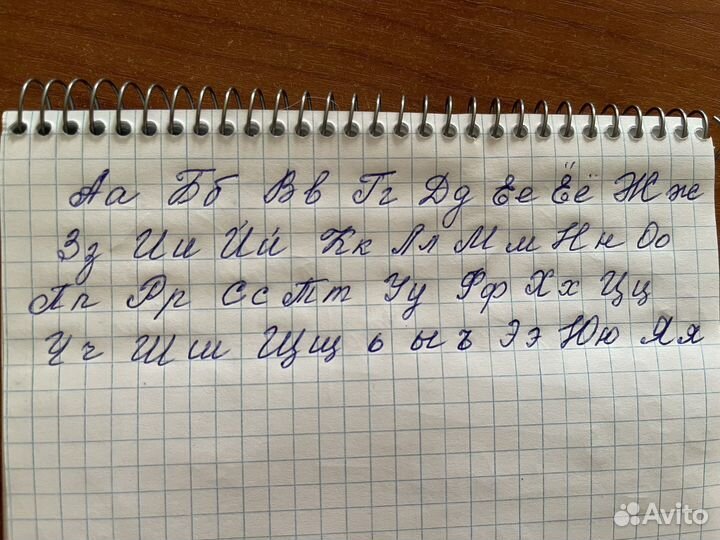 Аа Бб Вв Гг Дд Ее Ёё Жж
Зз Ии Йй Кк Лл Мм Нн Оо
Пп Рр Сс Тт Уу Фф Хх Цц
Чч Шш Щщ ь ы ъ Ээ Юю Яя
Avito